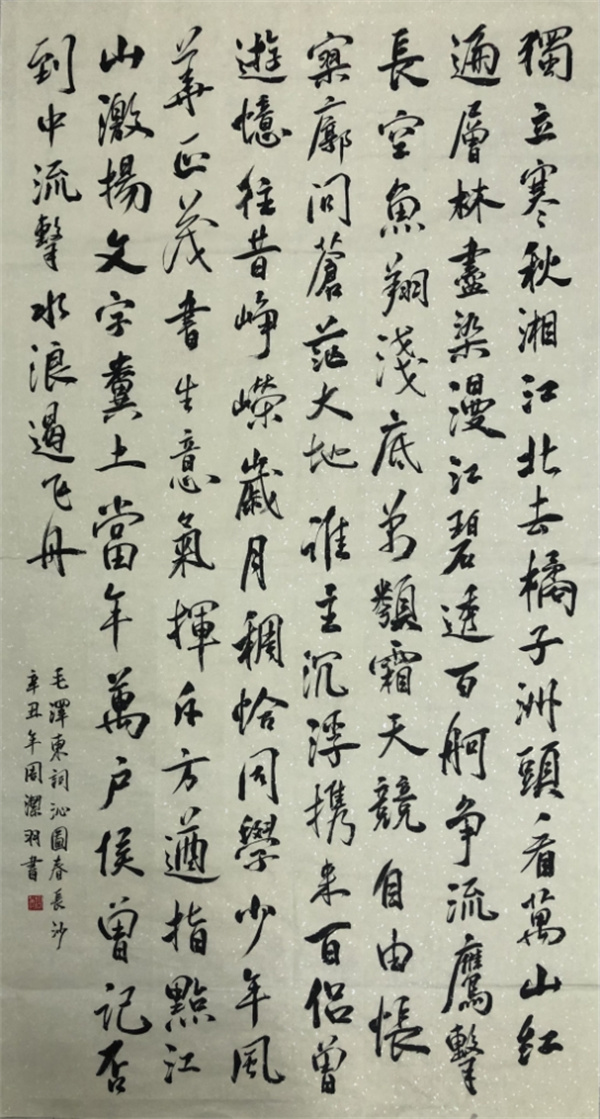 獨立寒秋湘江北去橘子洲頭看萬山紅
遍層林盡染漫江碧透百舸争流鷹擊
長空魚翔淺底万類霜天競自由悵
寥廓问蒼茫大地誰主沉浮携来百侣曾
遊憶往昔崢嶸歲月稠恰同學少年風
華正茂書生意氣揮斥方遒指點江
山激揚文字糞土當年萬户侯曾記否
到中流擊水浪遏飞舟
毛澤東詞沁園春長沙
辛丑年周潔羽書